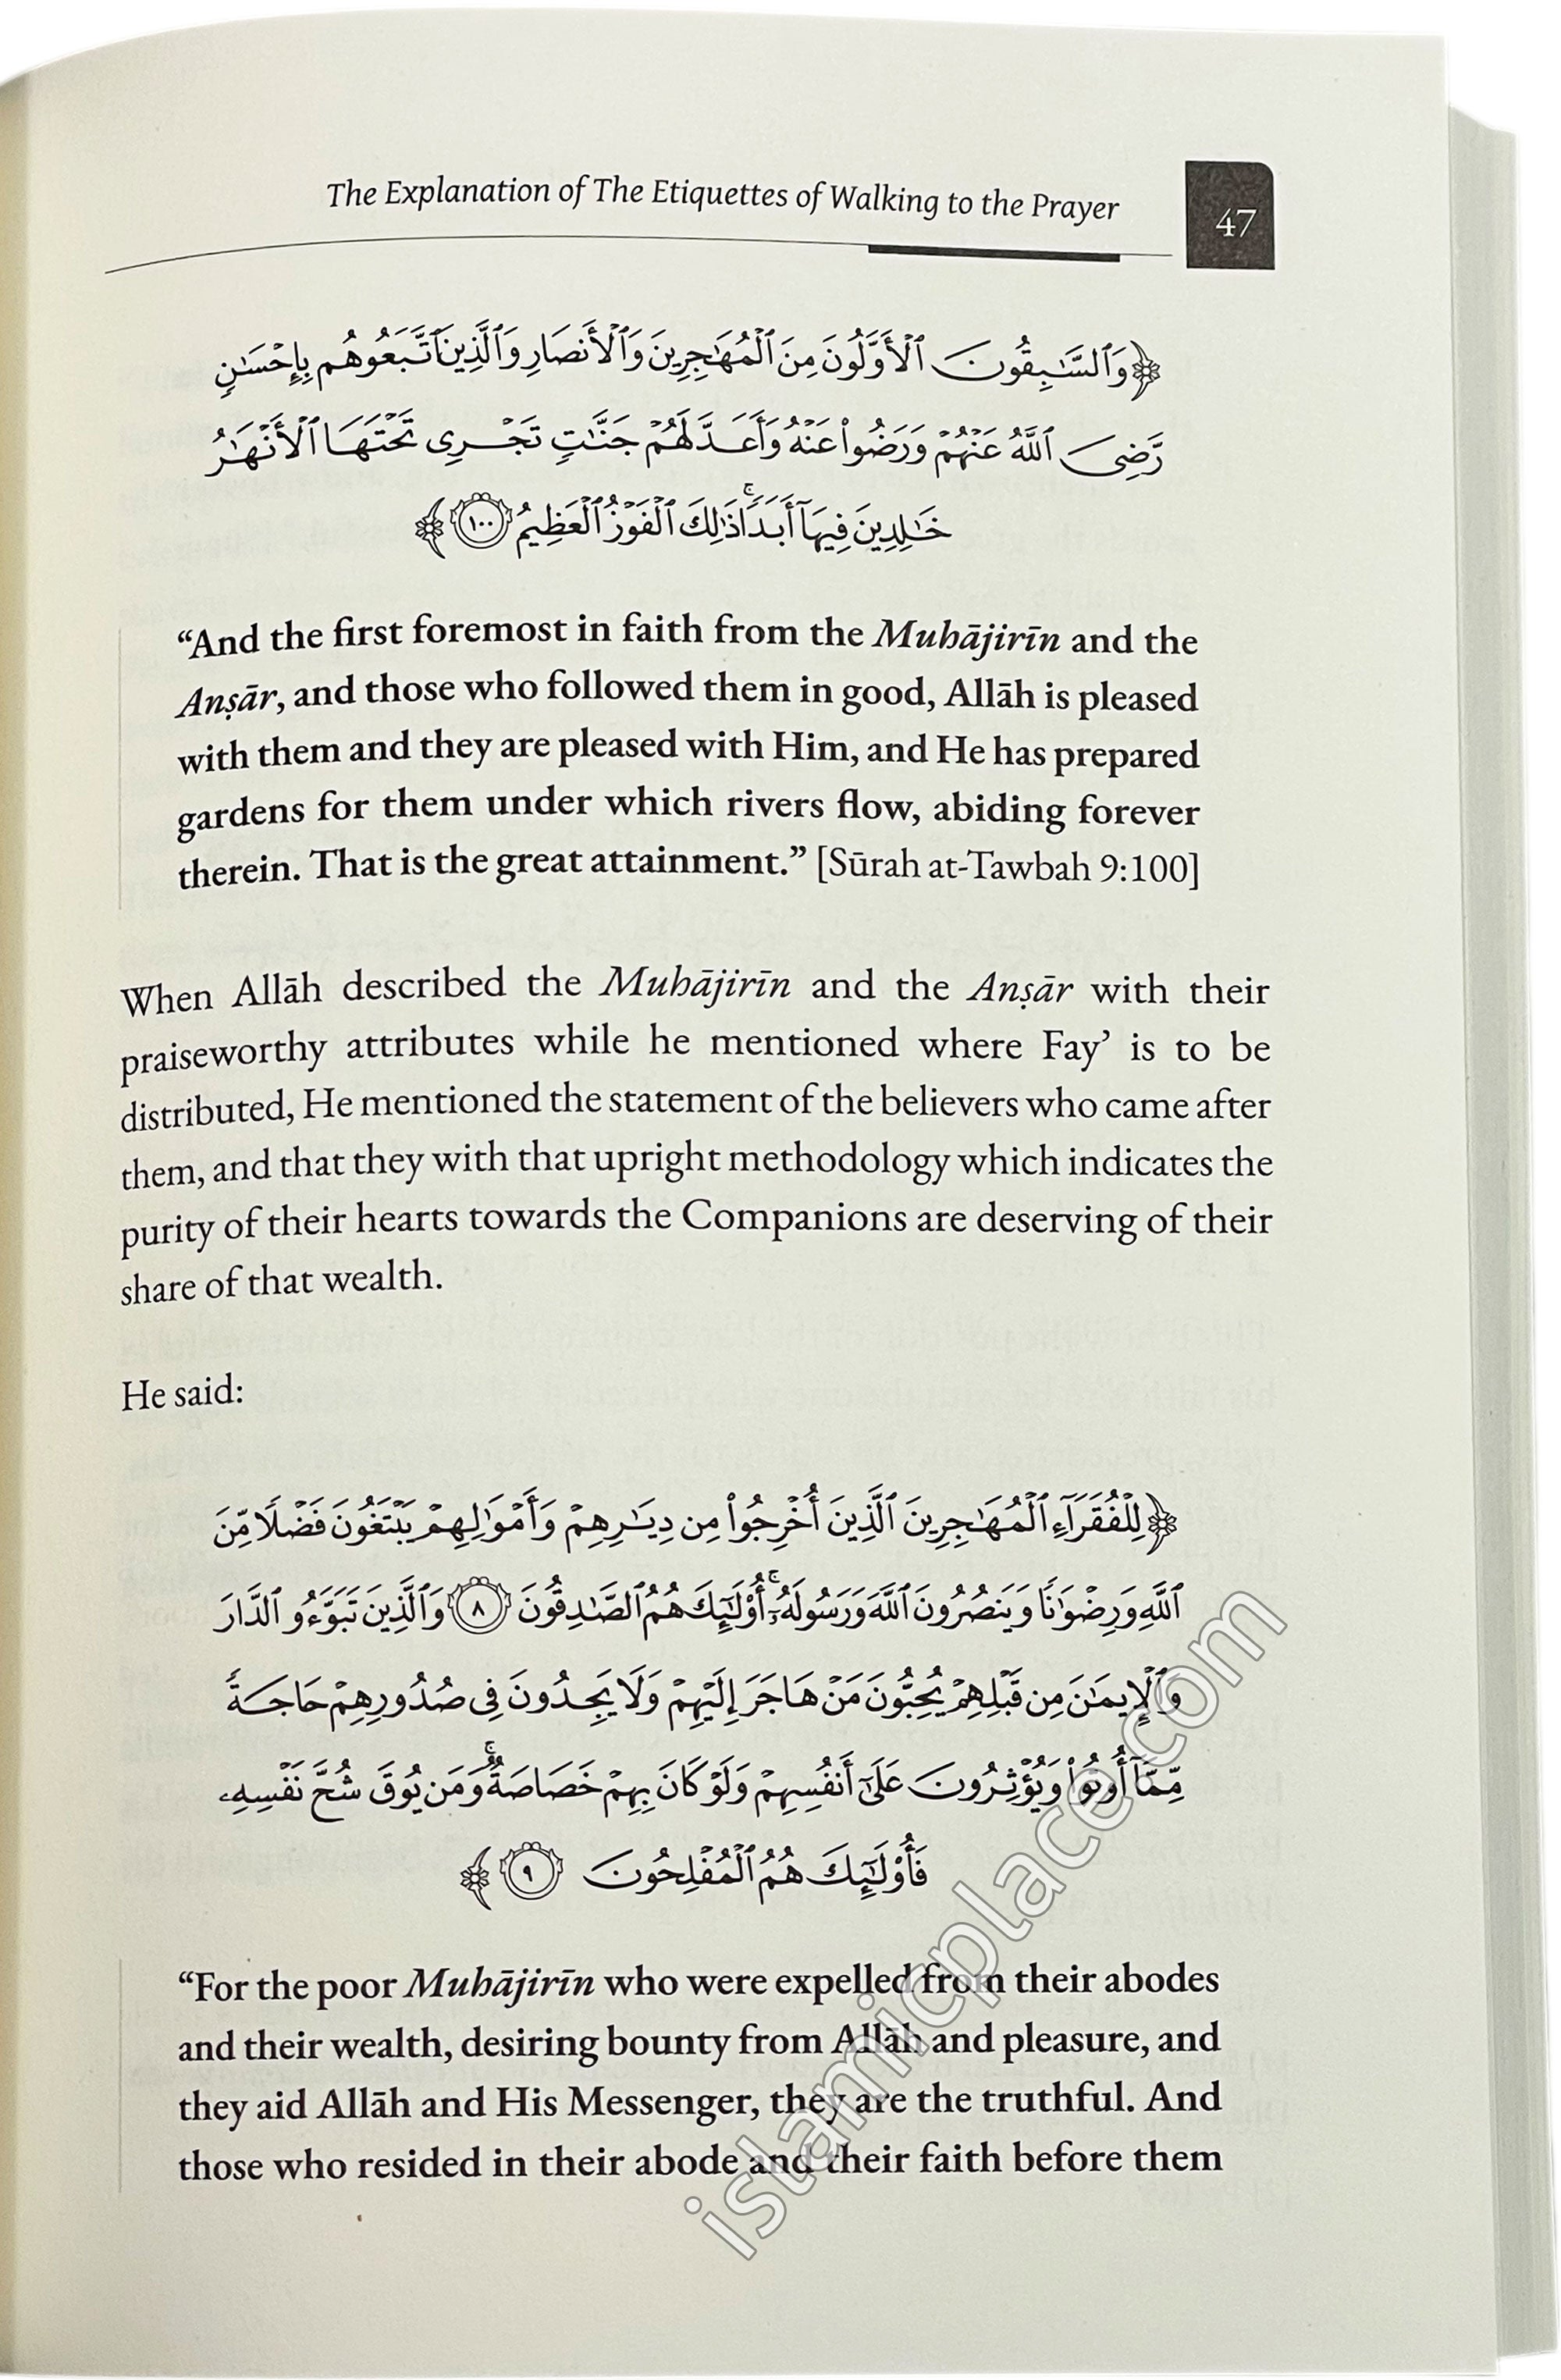 The Explanation of The Etiquettes of Walking to the Prayer
47
﴿وَٱلسَّـٰبِقُونَ ٱلْأَوَّلُونَ مِنَ ٱلْمُهَـٰجِرِينَ وَٱلْأَنصَارِ وَٱلَّذِينَ ٱتَّبَعُوهُم بِإِحْسَـٰنٍ
رَّضِىَ ٱللَّهُ عَنْهُمْ وَرَضُوا۟ عَنْهُ وَأَعَدَّ لَهُمْ جَنَّـٰتٍ تَجْرِى تَحْتَهَا ٱلْأَنْهَـٰرُ
خَـٰلِدِينَ فِيهَآ أَبَدًا ۚ ذَٰلِكَ ٱلْفَوْزُ ٱلْعَظِيمُ ١٠٠﴾
“And the first foremost in faith from the Muhājirīn and the
Anṣār, and those who followed them in good, Allāh is pleased
with them and they are pleased with Him, and He has prepared
gardens for them under which rivers flow, abiding forever
therein. That is the great attainment.” [Sūrah at-Tawbah 9:100]
When Allāh described the Muhājirīn and the Anṣār with their
praiseworthy attributes while he mentioned where Fay’ is to be
distributed, He mentioned the statement of the believers who came after
them, and that they with that upright methodology which indicates the
purity of their hearts towards the Companions are deserving of their
share of that wealth.
He said:
﴿لِلْفُقَرَآءِ ٱلْمُهَـٰجِرِينَ ٱلَّذِينَ أُخْرِجُوا۟ مِن دِيَـٰرِهِمْ وَأَمْوَٰلِهِمْ يَبْتَغُونَ فَضْلًا مِّنَ
ٱللَّهِ وَرِضْوَٰنًا وَيَنصُرُونَ ٱللَّهَ وَرَسُولَهُۥٓ ۚ أُو۟لَـٰٓئِكَ هُمُ ٱلصَّـٰدِقُونَ ٨ وَٱلَّذِينَ تَبَوَّءُو ٱلدَّارَ
وَٱلْإِيمَـٰنَ مِن قَبْلِهِمْ يُحِبُّونَ مَنْ هَاجَرَ إِلَيْهِمْ وَلَا يَجِدُونَ فِى صُدُورِهِمْ حَاجَةً
مِّمَّآ أُوتُوا۟ وَيُؤْثِرُونَ عَلَىٰٓ أَنفُسِهِمْ وَلَوْ كَانَ بِهِمْ خَصَاصَةٌ ۚ وَمَن يُوقَ شُحَّ نَفْسِهِۦ
فَأُو۟لَـٰٓئِكَ هُمُ ٱلْمُفْلِحُونَ ٩﴾
“For the poor Muhājirīn who were expelled from their abodes
and their wealth, desiring bounty from Allāh and pleasure, and
they aid Allāh and His Messenger, they are the truthful. And
those who resided in their abode and their faith before them
islamicplace.com